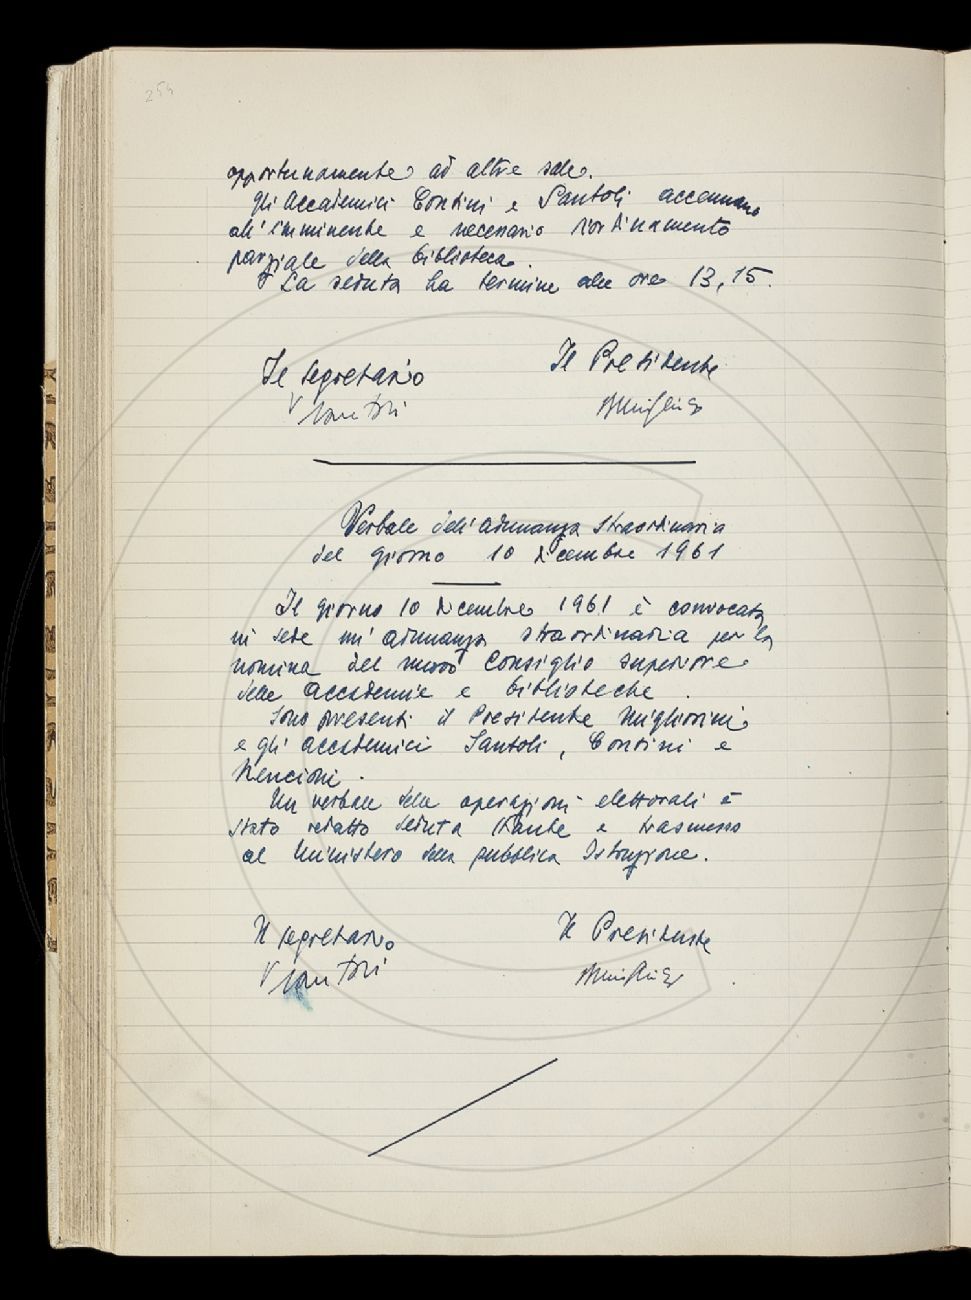 254
opportunamente ad altre sale.
Gli Accademici Contini e Santoli accennano
all'imminente e necessario riordinamento
parziale della biblioteca.
La seduta ha termine alle ore 13,15.
Il segretario Il Presidente
V Santoli BMigliorini
Verbale dell'adunanza straordinaria
del giorno 10 dicembre 1961
Il giorno 10 dicembre 1961 è convocata
in sede un'adunanza straordinaria per la
nomina del nuovo Consiglio superiore
delle accademie e biblioteche.
Sono presenti il Presidente Migliorini
e gli accademici Santoli, Contini e
Nencioni.
Un verbale delle operazioni elettorali è
stato redatto seduta stante e trasmesso
al Ministero della pubblica Istruzione.
Il segretario Il Presidente
V Santoli BMigliorini